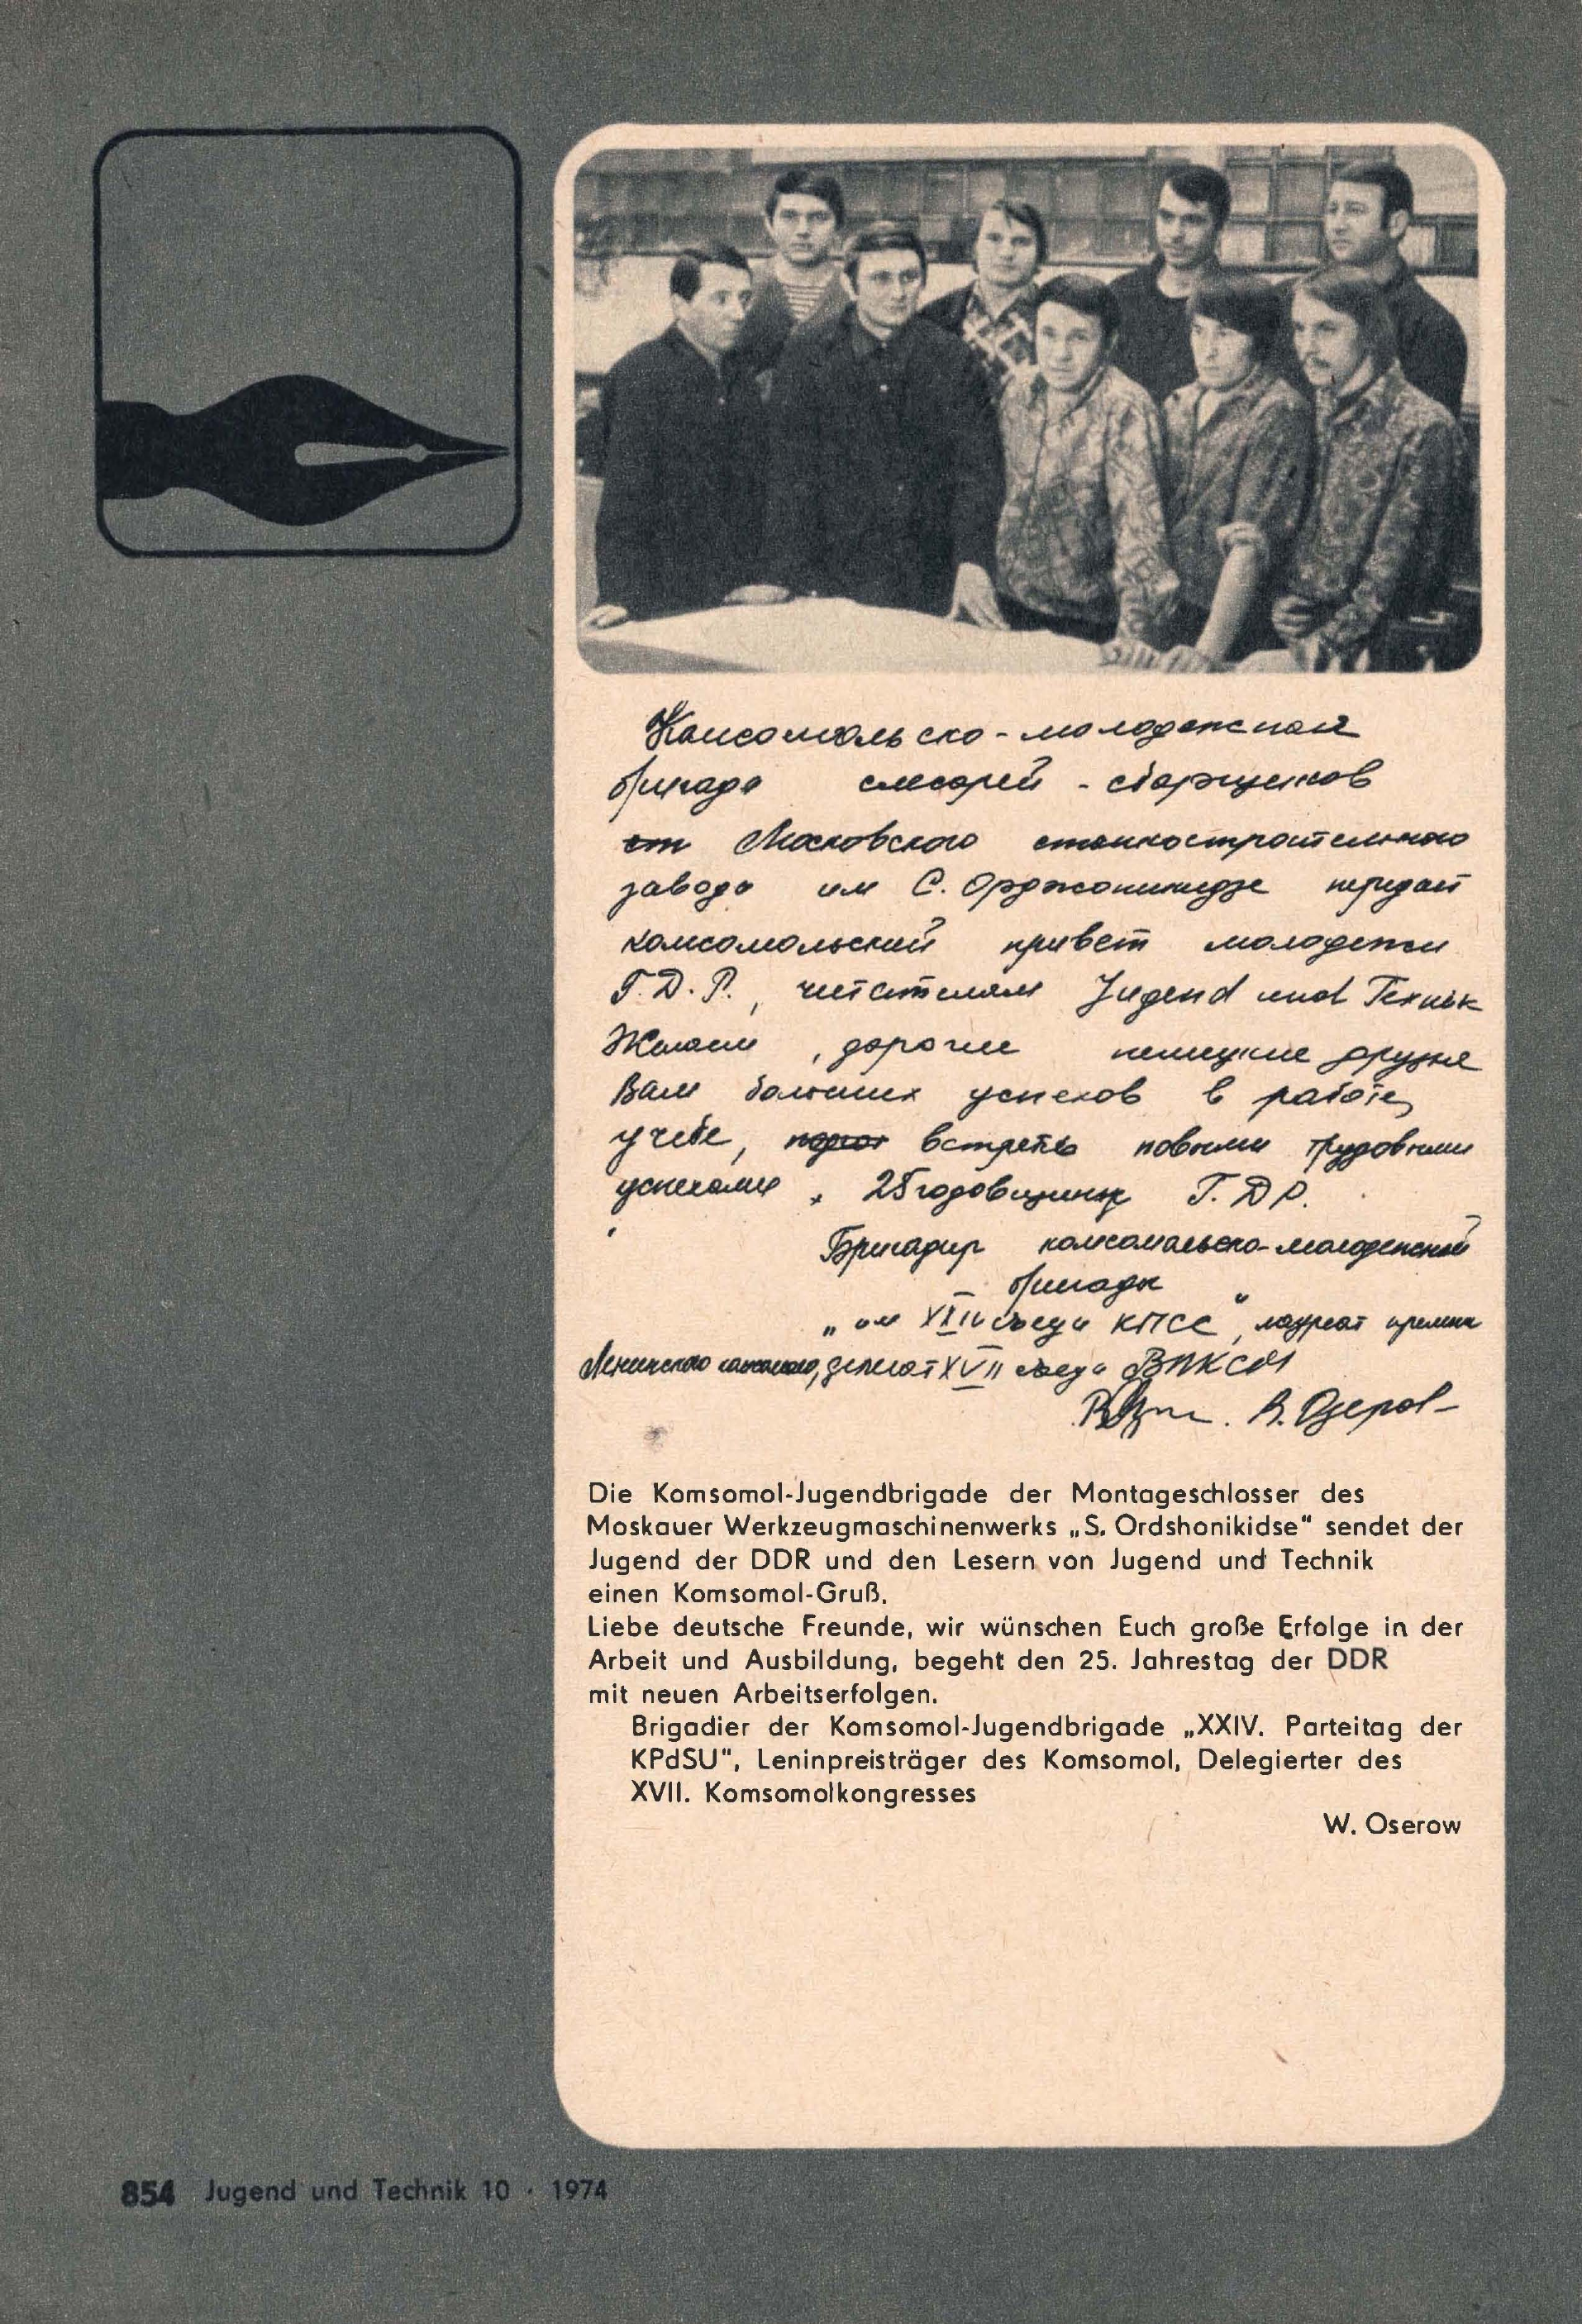 Комсомольско-молодежная
бригада слесарей-сборщиков
ст Московского станкостроительного
завода им С. Орджоникидзе передает
комсомольский привет молодежи
Г.Д.Р., читателям Jugend und Технik
Желаем, дорогие немецкие друзья
Вам больших успехов в работе,
учебе, встретить новыми трудовыми
успехами 25 годовщину Г.ДР.
Бригадир комсомольско-молодежной
бригады
„им XXIV съезда КПСС“, лауреат премии
Ленинского комсомола, делегат XVII съезда ВЛКСМ
В. Озеров
Die Komsomol-Jugendbrigade der Montageschlosser des
Moskauer Werkzeugmaschinenwerks „S. Ordshonikidse“ sendet der
Jugend der DDR und den Lesern von Jugend und Technik
einen Komsomol-Gruß.
Liebe deutsche Freunde, wir wünschen Euch große Erfolge in der
Arbeit und Ausbildung, begeht den 25. Jahrestag der DDR
mit neuen Arbeitserfolgen.
Brigadier der Komsomol-Jugendbrigade „XXIV. Parteitag der
KPdSU“, Leninpreisträger des Komsomol, Delegierter des
XVII. Komsomolkongresses
W. Oserow
854 Jugend und Technik 10 · 1974